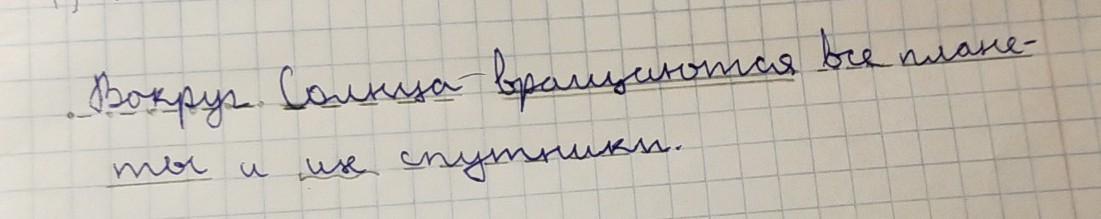 Вокруг Солнца вращаются все плане-
ты и их спутники.